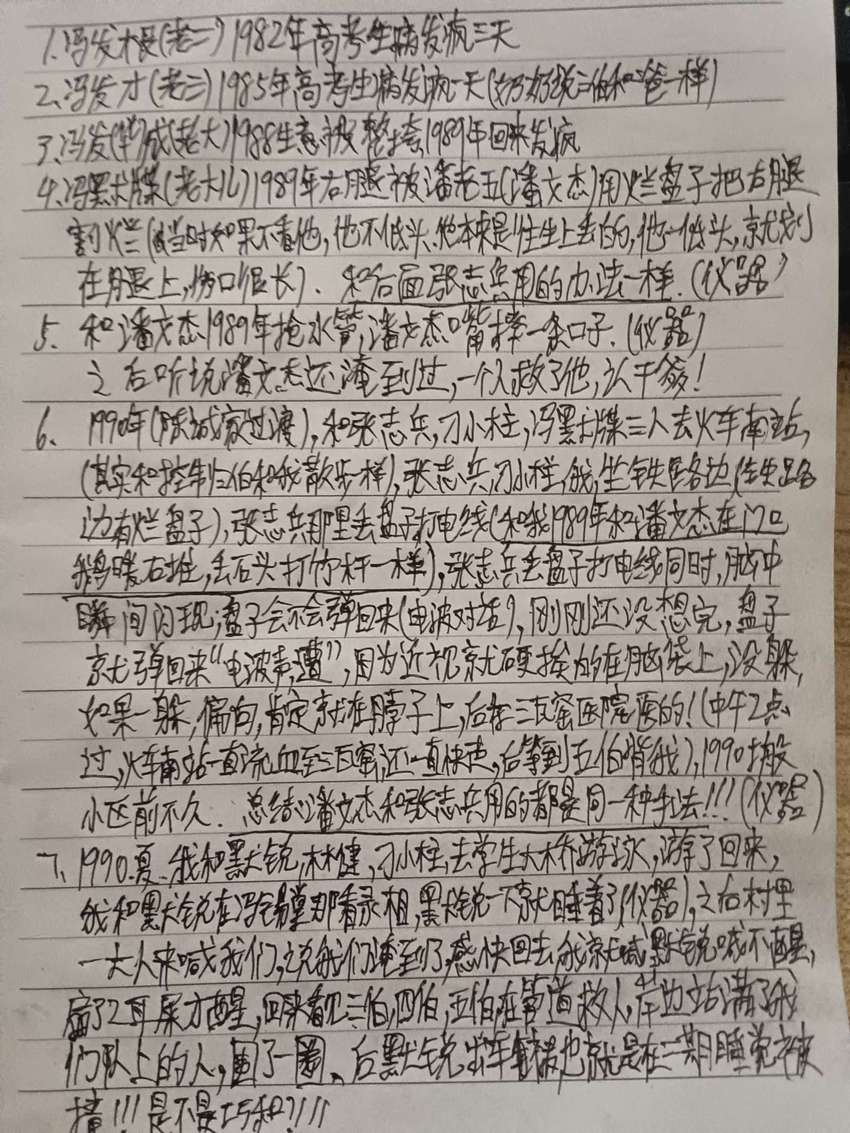 1.冯发根(老二)1982年高考生病发疯三天
2、冯发才(老三)1985年高考生病发疯一天(奶奶说三伯和爸一样)
3、冯发(华)成(老大)1988生意被整垮,1989年回来发疯
4、冯默媒(老大儿)1989年右腿被潘老五(潘文杰)用烂盘子把右腿
割烂(当时如果不看他,他不低头、他本来是往坐上丢的,他一低头,就划
在腿上,伤口很长)、和后面张志兵用的办法一样.(仪器)
5、和潘文杰1989年抢水管,潘文杰嘴摔一条口子.(仪器)
之后听说潘文杰还淹到过,一个人救了他,认干爹!
6、1990年(陈城家过渡),和张志兵,刁小柱,冯默媒三人去火车南站,
(其实和控制三伯和我散步一样),张志兵,刁小柱,我,坐铁路边(铁路
边有烂盘子),张志兵那里丢盘子打电线(和我1989年和潘文杰在门口
右,丢石头打竹杆一样),张志兵丢盘子打电线同时,脑中
瞬间闪现;盘子会不会弹回来(电波对话),刚刚还没想完,盘子
就弹回来“电波声,遭”,因为近视就硬挨的在脑袋上,没躲,
如果一躲,偏向,肯定就在脖子上,后在三瓦窑医院医的!(中午2点
过,火车南站一直流血至三瓦窑,还一直快走,后等到五伯背我),1990搬
小区前不久.总结:潘文杰和张志兵用的都是同一种手法!!!(仪器)
7、1990.夏.我和默锐,林健,刁小柱,去学生大桥游泳,游了回来,
我和默锐在冯锡堂那看录相,默锐一下就睡着了(仪器),之后村里
一大人来喊我们,说我们淹到了,赶快回去,我就喊默锐喊不醒,
扇了2耳屎才醒,回来看见三伯,四伯,五伯在管道救人,岸边站满了我
们队上的人,围了一圈、后默锐出车祸也就是在三期睡觉被
撞!!!是不是巧和?!!!